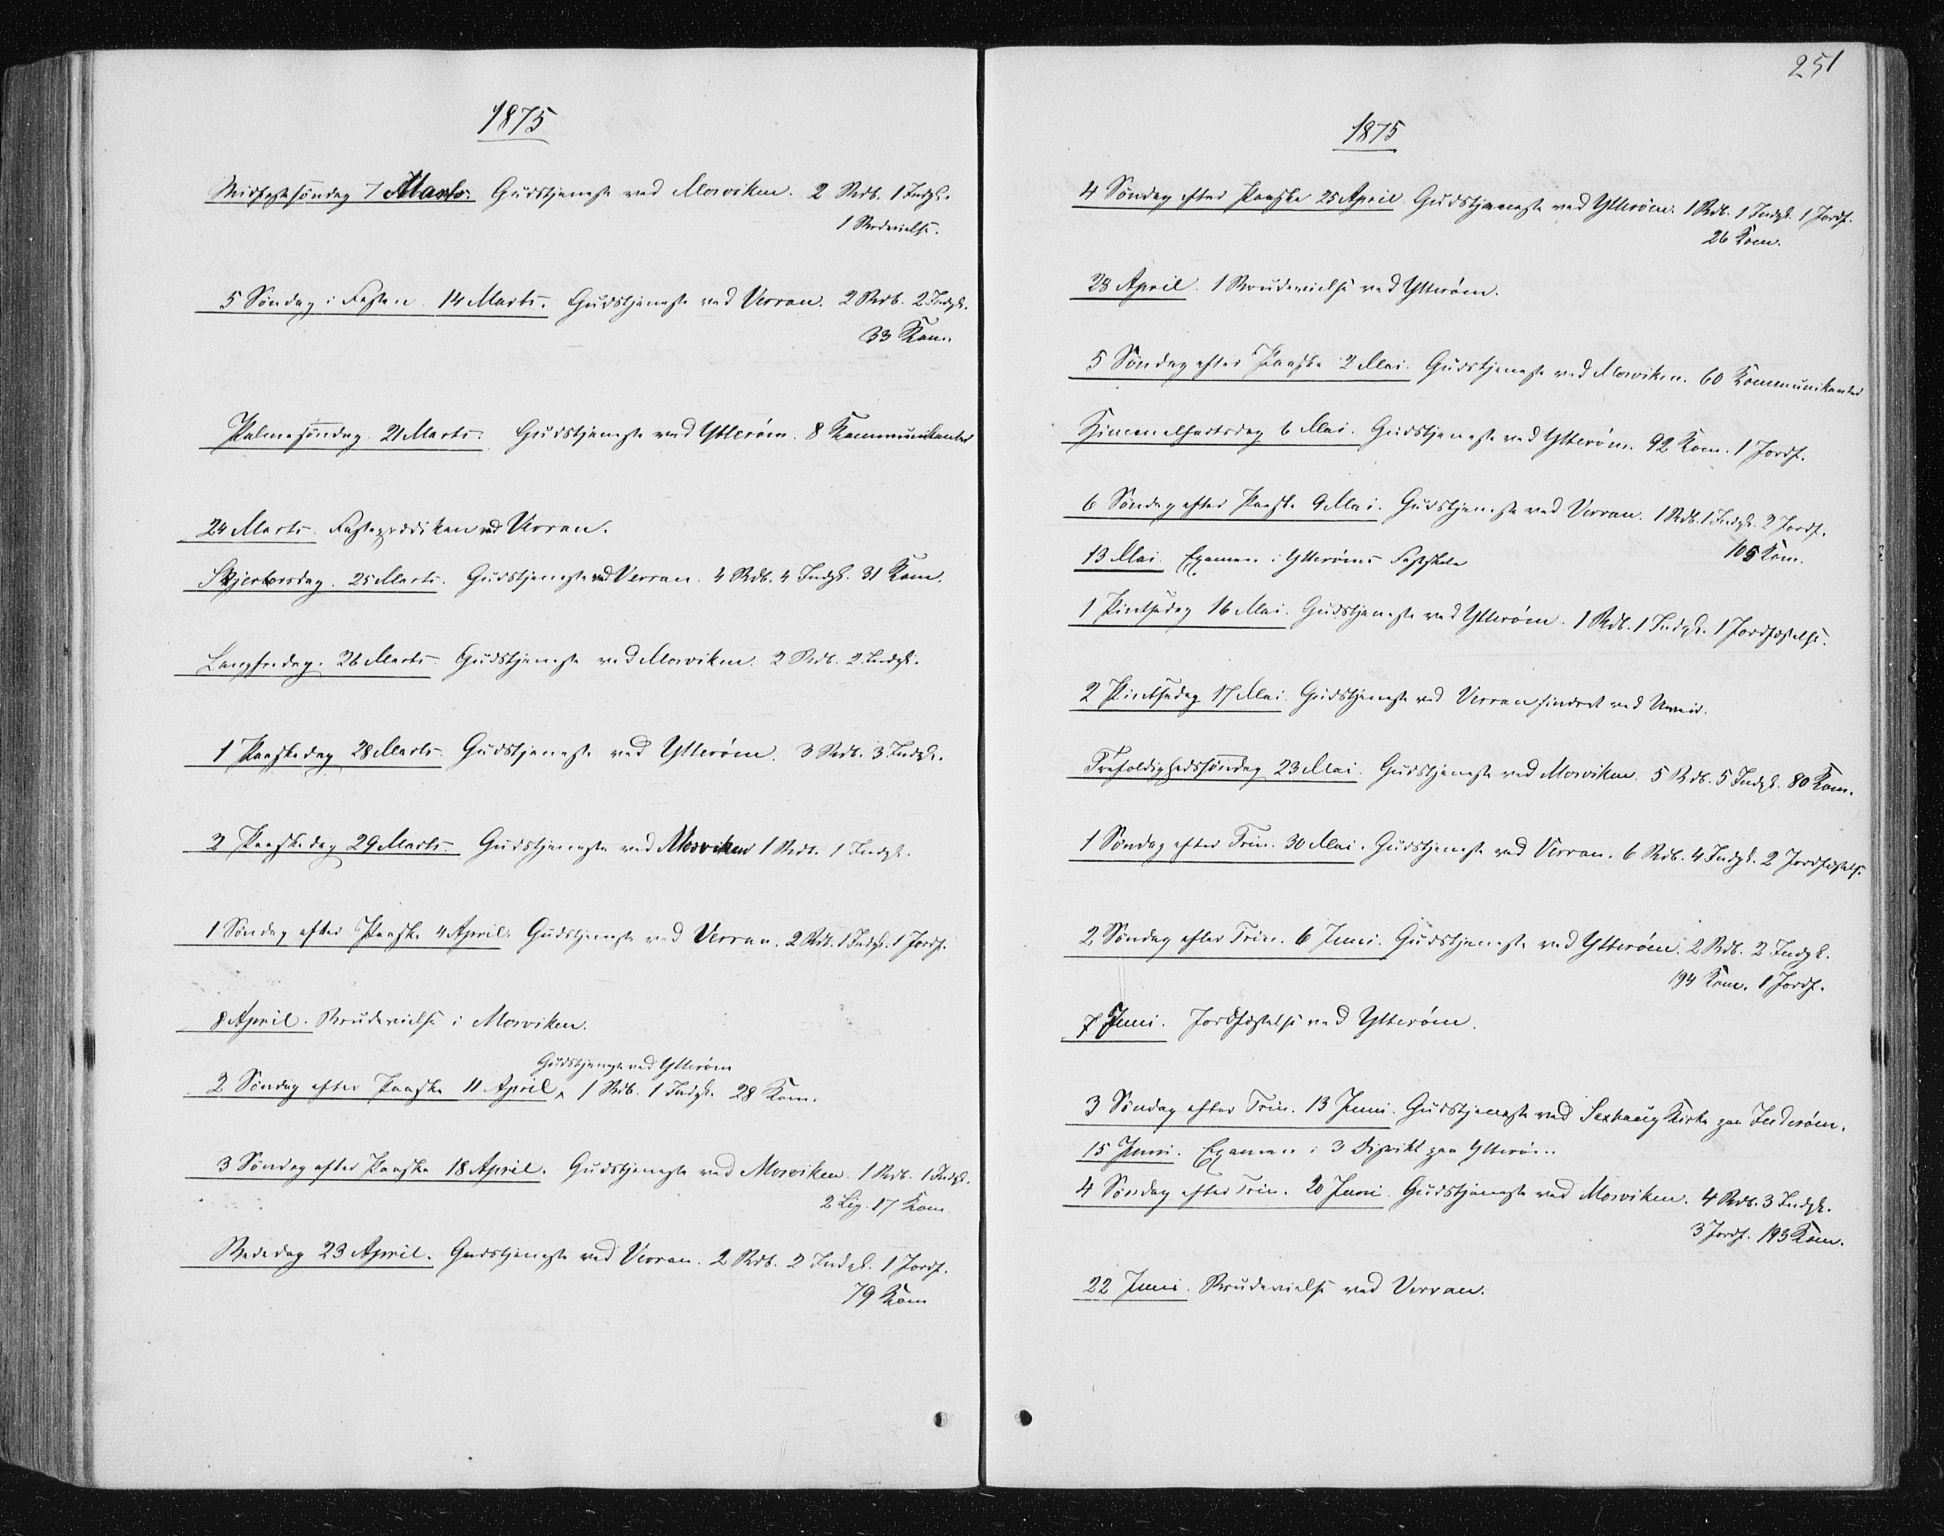 1875
Midfastesøndag 7 Marts. Gudstjeneste ved Mosviken. 2 Bdb. 1 Indgk.
1 Brudevielse.
5 Søndag i Fasten. 14 Marts. Gudstjeneste ved Verran. 2 Bdb. 2 Indgk.
33 Kom.
Palmesøndag. 21 Marts. Gudstjeneste ved Ytterøen. 8 Kommunikanter
24 Marts. Fasteprædiken ved Verran.
Skjertorsdag. 25 Marts. Gudstjeneste ved Verran. 4 Bdb. 4 Indgk. 31 Kom.
Langfredag. 26 Marts. Gudstjeneste ved Mosviken. 2 Bdb. 2 Indgk.
1 Paaskedag 28 Marts. Gudstjeneste ved Ytterøen. 3 Bdb. 3 Indgk.
2 Paaskedag 29 Marts. Gudstjeneste ved Mosviken 1 Bdb. 1 Indgk.
1 Søndag efter Paaske 4 April. Gudstjeneste ved Verran. 2 Bdb. 1 Indgk. 1 Jordf.
8 April. Brudevielse i Mosviken.
Gudstjeneste ved Ytterøen
2 Søndag efter Paaske 11 April, 1 Bdb. 1 Indgk. 28 Kom.
3 Søndag efter Paaske 18 April. Gudstjeneste ved Mosviken. 1 Bdb. 1 Indgk.
2 Lig. 17 Kom.
Bededag 23 April. Gudstjeneste ved Verran. 2 Bdb. 2 Indgk. 1 Jordf.
79 Kom
251
1875
4 Søndag efter Paaske 25 April. Gudstjeneste ved Ytterøen. 1 Bdb. 1 Indgk. 1 Jordf.
26 Kom.
28 April. 1 Brudevielse ved Ytterøen.
5 Søndag efter Paaske 2 Mai. Gudstjeneste ved Mosviken. 60 Kommunikanter
Himmelfartsdag 6 Mai. Gudstjeneste ved Ytterøen. 92 Kom. 1 Jordf.
6 Søndag efter Paaske 9 Mai. Gudstjeneste ved Verran. 1 Bdb. 1 Indgk. 2 Jordf.
105 Kom.
13 Mai. Examen i Ytterøens Fastskole
1 Pintsedag 16 Mai. Gudstjeneste ved Ytterøen. 1 Bdb. 1 Indgk. 1 Jordfæstelse.
2 Pintsedag 17 Mai. Gudstjeneste ved Verran hindret ved Uveir.
Trefoldighedssøndag 23 Mai. Gudstjeneste ved Mosviken. 5 Bdb. 5 Indgk. 80 Kom.
1 Søndag efter Trin. 30 Mai. Gudstjeneste ved Verran. 6 Bdb. 4 Indgk. 2 Jordfæstelse
2 Søndag efter Trin. 6 Juni. Gudstjeneste ved Ytterøen. 2 Bdb. 2 Indgk.
194 Kom. 1 Jordf.
7 Juni. Jordfæstelse ved Ytterøen.
3 Søndag efter Trin. 13 Juni. Gudstjeneste ved Saxhaug Kirke paa Inderøen.
15 Juni. Examen i 3 Distrikt paa Ytterøen.
4 Søndag efter Trin. 20 Juni. Gudstjeneste ved Mosviken. 4 Bdb. 3 Indgk.
3 Jordf. 193 Kom.
22 Juni. Brudevielse ved Verran.